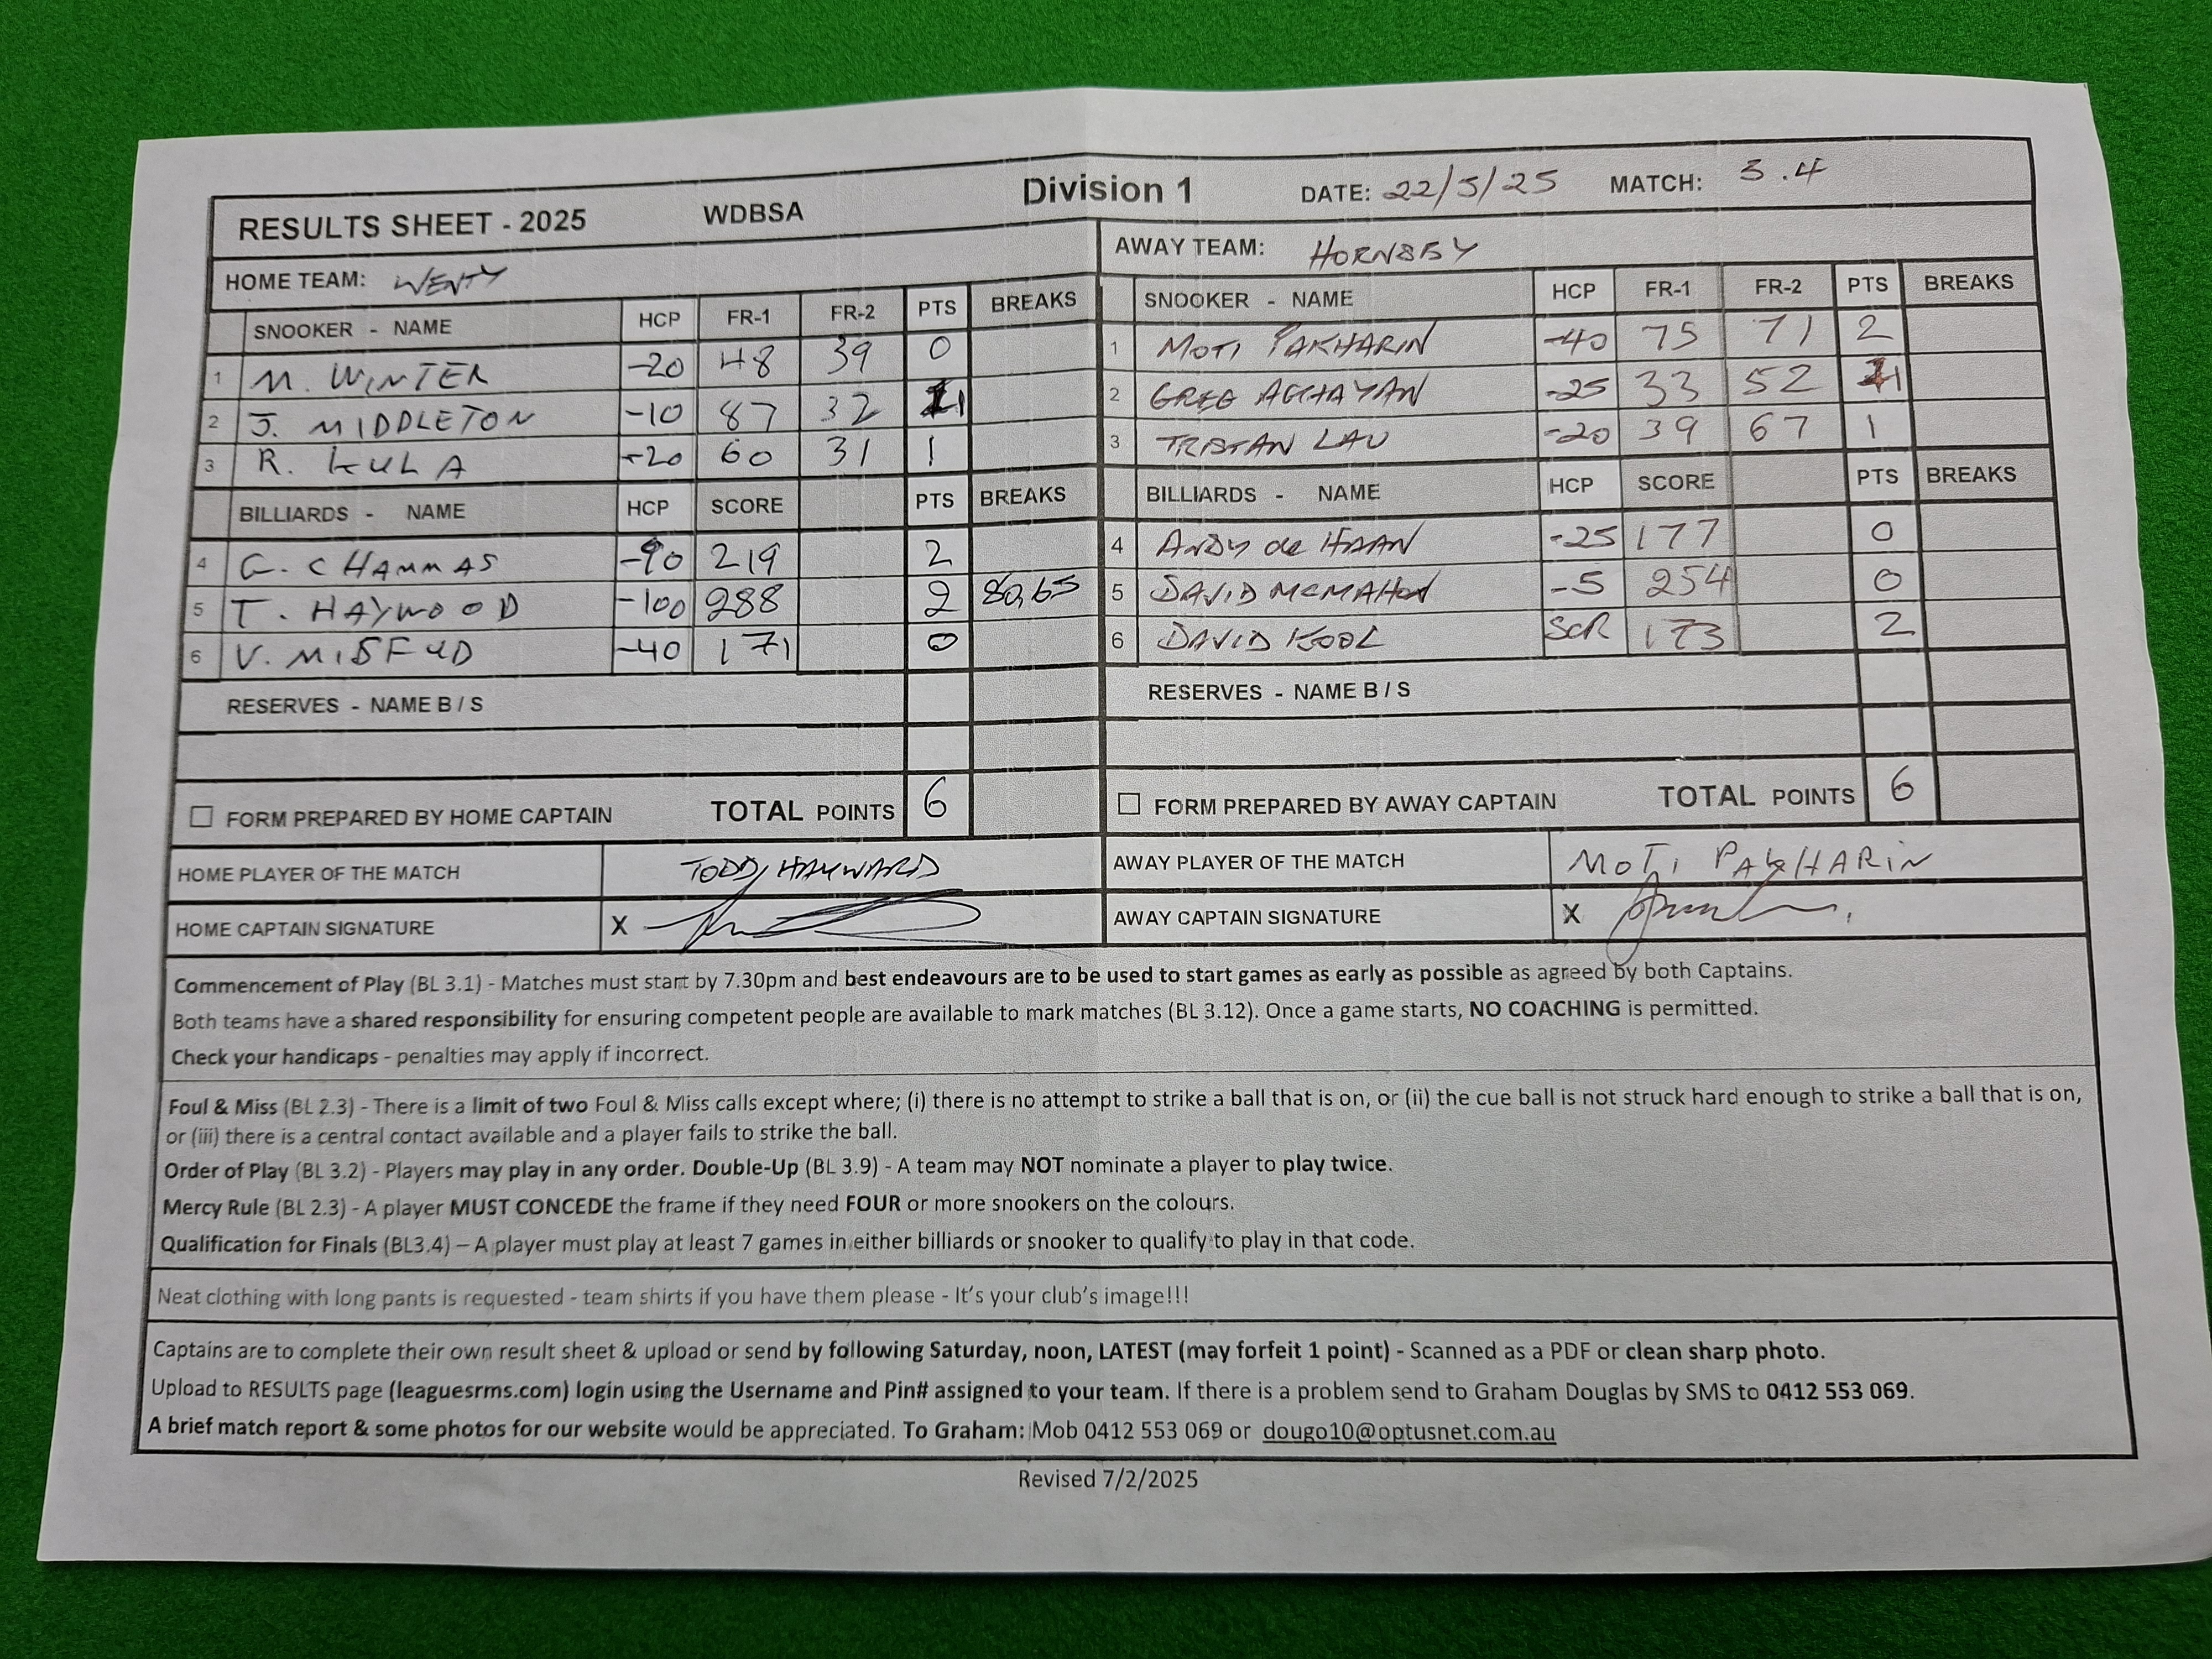 RESULTS SHEET - 2025 WDBSA Division 1 DATE: 22/5/25 MATCH: 3.4
HOME TEAM: WENTY AWAY TEAM: HORNSBY
SNOOKER - NAME HCP FR-1 FR-2 PTS BREAKS SNOOKER - NAME HCP FR-1 FR-2 PTS BREAKS
1 M. WINTER -20 48 39 0 1 MOTI PAKHARIN -40 75 71 2
2 J. MIDDLETON -10 87 32 1 2 GREG AGHAYAN -25 33 52 1
3 R. KULA -20 60 31 1 3 TRISTAN LAU -20 39 67 1
BILLIARDS - NAME HCP SCORE PTS BREAKS BILLIARDS - NAME HCP SCORE PTS BREAKS
4 G. CHAMMAS -90 219 2 4 ANDY de HAAN -25 177 0
5 T. HAYWOOD -100 288 2 80,65 5 DAVID MCMAHON -5 254 0
6 V. MISFUD -40 171 0 6 DAVID KOOL SCR 173 2
RESERVES - NAME B / S RESERVES - NAME B / S
FORM PREPARED BY HOME CAPTAIN TOTAL POINTS 6 FORM PREPARED BY AWAY CAPTAIN TOTAL POINTS 6
HOME PLAYER OF THE MATCH TODD HAYWARD AWAY PLAYER OF THE MATCH MOTI PAKHARIN
HOME CAPTAIN SIGNATURE X AWAY CAPTAIN SIGNATURE X
Commencement of Play (BL 3.1) - Matches must start by 7.30pm and best endeavours are to be used to start games as early as possible as agreed by both Captains.
Both teams have a shared responsibility for ensuring competent people are available to mark matches (BL 3.12). Once a game starts, NO COACHING is permitted.
Check your handicaps - penalties may apply if incorrect.
Foul & Miss (BL 2.3) - There is a limit of two Foul & Miss calls except where; (i) there is no attempt to strike a ball that is on, or (ii) the cue ball is not struck hard enough to strike a ball that is on,
or (iii) there is a central contact available and a player fails to strike the ball.
Order of Play (BL 3.2) - Players may play in any order. Double-Up (BL 3.9) - A team may NOT nominate a player to play twice.
Mercy Rule (BL 2.3) - A player MUST CONCEDE the frame if they need FOUR or more snookers on the colours.
Qualification for Finals (BL3.4) – A player must play at least 7 games in either billiards or snooker to qualify to play in that code.
Neat clothing with long pants is requested - team shirts if you have them please - It's your club's image!!!
Captains are to complete their own result sheet & upload or send by following Saturday, noon, LATEST (may forfeit 1 point) - Scanned as a PDF or clean sharp photo.
Upload to RESULTS page (leaguesrms.com) login using the Username and Pin# assigned to your team. If there is a problem send to Graham Douglas by SMS to 0412 553 069.
A brief match report & some photos for our website would be appreciated. To Graham: Mob 0412 553 069 or dougo10@optusnet.com.au
Revised 7/2/2025